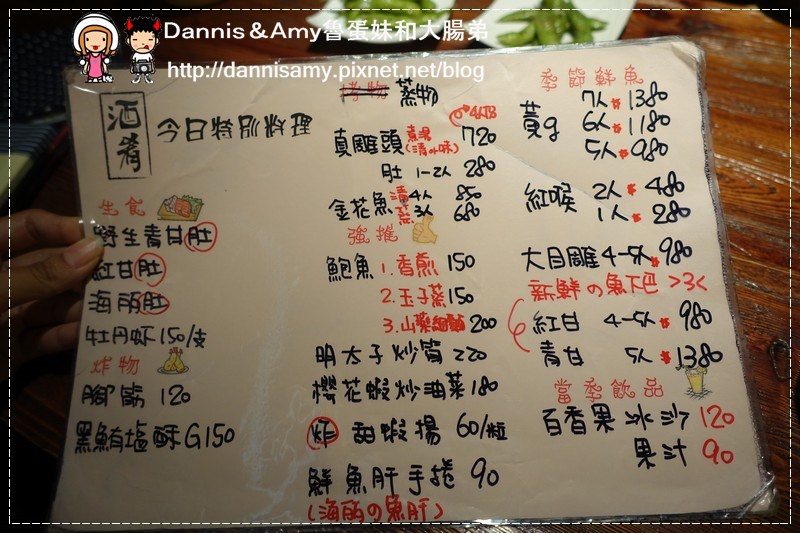 Dannis & Amy魯蛋妹和大腸弟
http://dannisamy.pixnet.net/blog
酒肴
今日特別料理
生食
野生青甘肚
紅甘肚
海朊肚
牡丹虾 150/支
炸物
腳筋 120
黑鮪塩酥G 150
烤物 蒸物
真雕頭 蒸湯(清or味) 720
肚 1-2人 280
金花魚 清蒸 4人 850
3人 680
強推
鮑魚 1.香煎 150
2.玉子蒸 150
3.山藥細麵 200
明太子炒筍 220
櫻花蝦炒油菜 180
炸 甜蝦揚 60/粒
鮮魚肝手捲 90
(海朊の魚肝)
季節鮮魚
黃g 7人$ 1380
6人$ 1180
5人$ 980
紅喉 2人$ 480
1人$ 280
大目雕 4-5人$ 980
新鮮の魚下巴 >3<
紅甘 4-5人$ 980
青甘 5人$ 1380
當季飲品
百香果冰沙 120
果汁 90